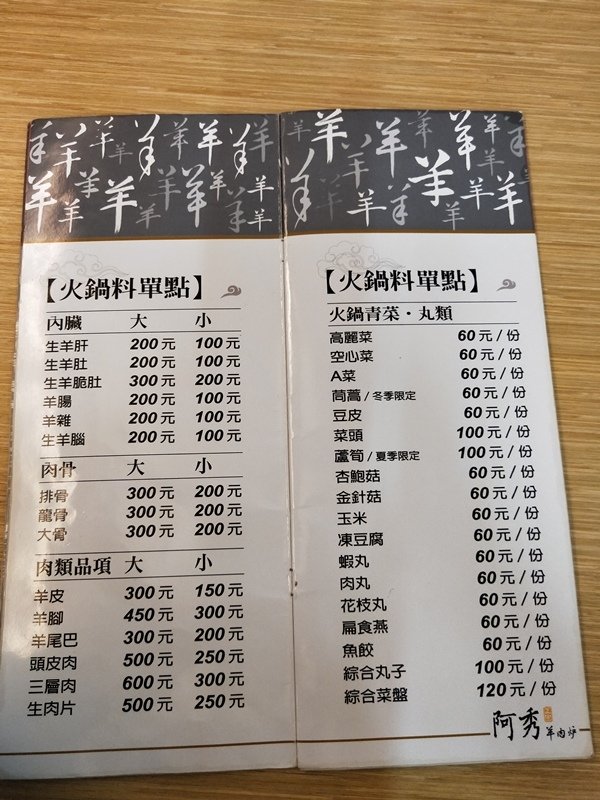 【火鍋料單點】
內臟 大 小
生羊肝 200元 100元
生羊肚 200元 100元
生羊脆肚 300元 200元
羊腸 200元 100元
羊雜 200元 100元
生羊腦 200元 100元
肉骨 大 小
排骨 300元 200元
龍骨 300元 200元
大骨 300元 200元
肉類品項 大 小
羊皮 300元 150元
羊腳 450元 300元
羊尾巴 300元 200元
頭皮肉 500元 250元
三層肉 600元 300元
生肉片 500元 250元
【火鍋料單點】
火鍋青菜·丸類
高麗菜 60元/份
空心菜 60元/份
A菜 60元/份
茼蒿/冬季限定 60元/份
豆皮 60元/份
菜頭 100元/份
蘆筍/夏季限定 100元/份
杏鮑菇 60元/份
金針菇 60元/份
玉米 60元/份
凍豆腐 60元/份
蝦丸 60元/份
肉丸 60元/份
花枝丸 60元/份
扁食燕 60元/份
魚餃 60元/份
綜合丸子 100元/份
綜合菜盤 120元/份
阿秀 羊肉爐